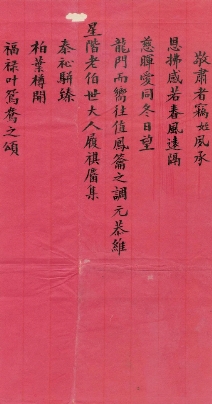 敬肅者竊姪夙承
恩拂感若春風遠隔
慈暉愛同冬日望
龍門而嚮往值鳳籥之調元恭維
星階老伯世大人履祺備集
泰祉駢臻
柏葉樽開
福祿叶鴛鴦之頌